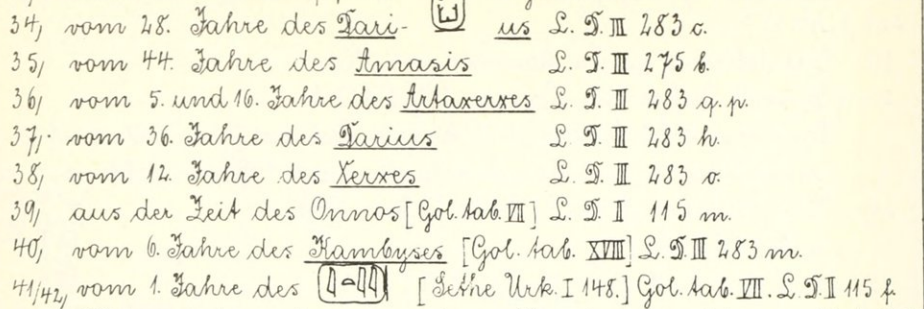 34, vom 28. Jahre des Dari- us L. D. III 283 c.
35, vom 44. Jahre des Amasis L. D. III 275 b.
36, vom 5. und 16. Jahre des Artaxerxes L. D. III 283 q. p.
37, vom 36. Jahre des Darius L. D. III 283 h.
38, vom 12. Jahre des Xerxes L. D. III 283 o.
39, aus der Zeit des Onnos [Gol. tab. VII] L. D. II 115 m.
40, vom 6. Jahre des Kambyses [Gol. tab. XVIII] L. D. III 283 m.
41/42, vom 1. Jahre des [Sethe Urk. I 148.] Gol. tab. VII. L. D. II 115 f.